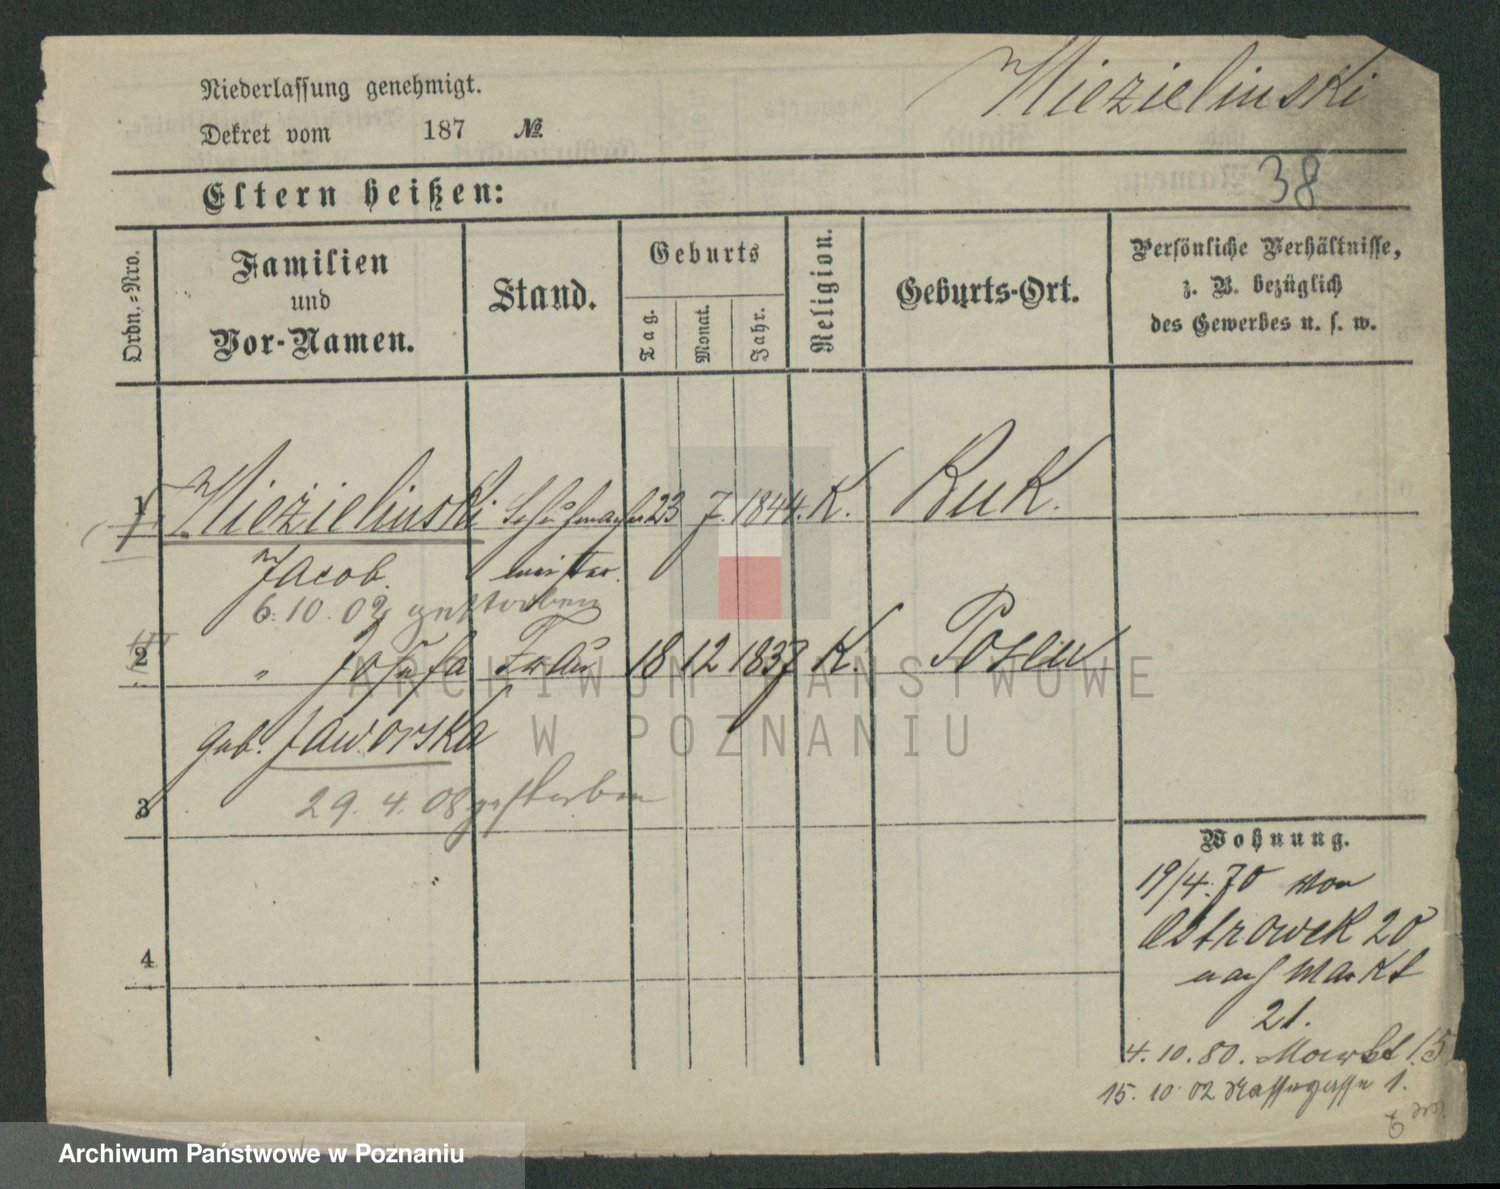 Niederlassung genehmigt.
Dekret vom 187 №
Niezielinski
38
Eltern heißen:
Ordn.=Nro.
Familien
und
Vor-Namen.
Stand.
Geburts
Tag.
Monat.
Jahr.
Religion.
Geburts-Ort.
Persönliche Verhältnisse,
z. B. bezüglich
des Gewerbes u. s. w.
1 Niezielinski Schuhmacher 23 7. 1844. K. Kuk.
Jacob. meister.
6. 10. 02 gestorben
2 " Josefa Frau 18 12 1837 K. Posen
geb. Jaworska
29. 4. 08 gestorben
3
4
Wohnung.
19/4. 70 von
Ostrowek 20
nach Markt
21.
4. 10. 80. Markt 15
15. 10 02 1.
ARCHIWUM PAŃSTWOWE
W POZNANIU
Archiwum Państwowe w Poznaniu